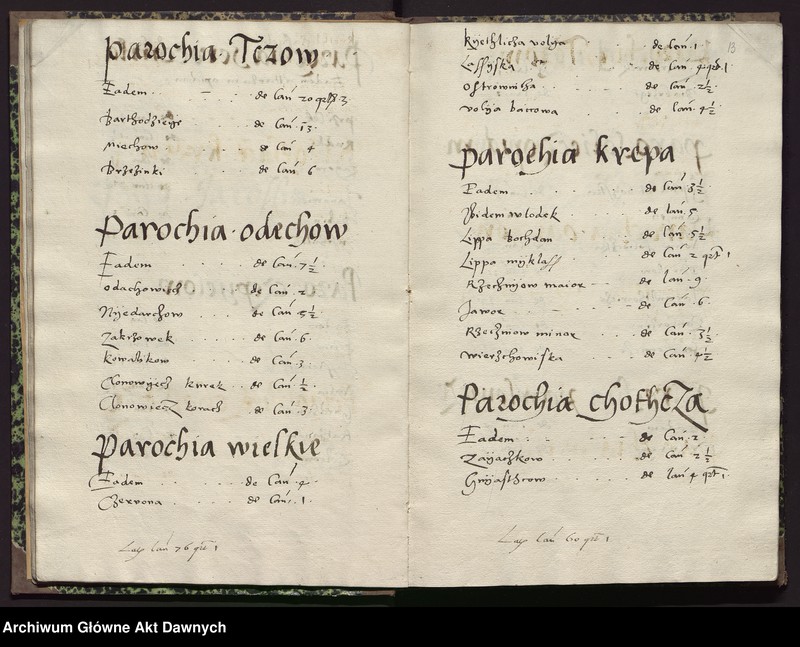 Parochia Tczow
Eadem de lan 20 qrt 3
Barthodzieye de lan 13
Miechow de lan 4
Brzezinki de lan 6
Parochia odechow
Eadem de lan 7 1/2
odachowisch de lan 2
Nyedarchow de lan 5 1/2
Zakrzowek de lan 6
Kowalikow de lan 3
Clonowyecz kurek de lan 1/2
Clonowiecz korach de lan 3
Parochia wielkie
Eadem de lan 4
Czervona de lan 1
lan 76 qrt 1
13
Kyethlicha volya de lan 1
Lessyska de lan 4 qrt 1
Ostrownicha de lan 2 1/2
volya baccowa de lan 4 1/2
Parochia krepa
Eadem de lan 8 1/2
Ibidem wlodek de lan 5
Lippa bochdan de lan 5 1/2
Lippa myklass de lan 2 qrt 1
Rzechnyow maior de lan 9
Jawor de lan 6
Rzeczniow minor de lan 3 1/2
wierzchowiska de lan 4 1/2
Parochia chothcza
Eadem de lan 2
Zayaczkow de lan 2 1/2
Gnyasthow de lan 4 qrt 1
lan 60 qrt 1
Archiwum Główne Akt Dawnych